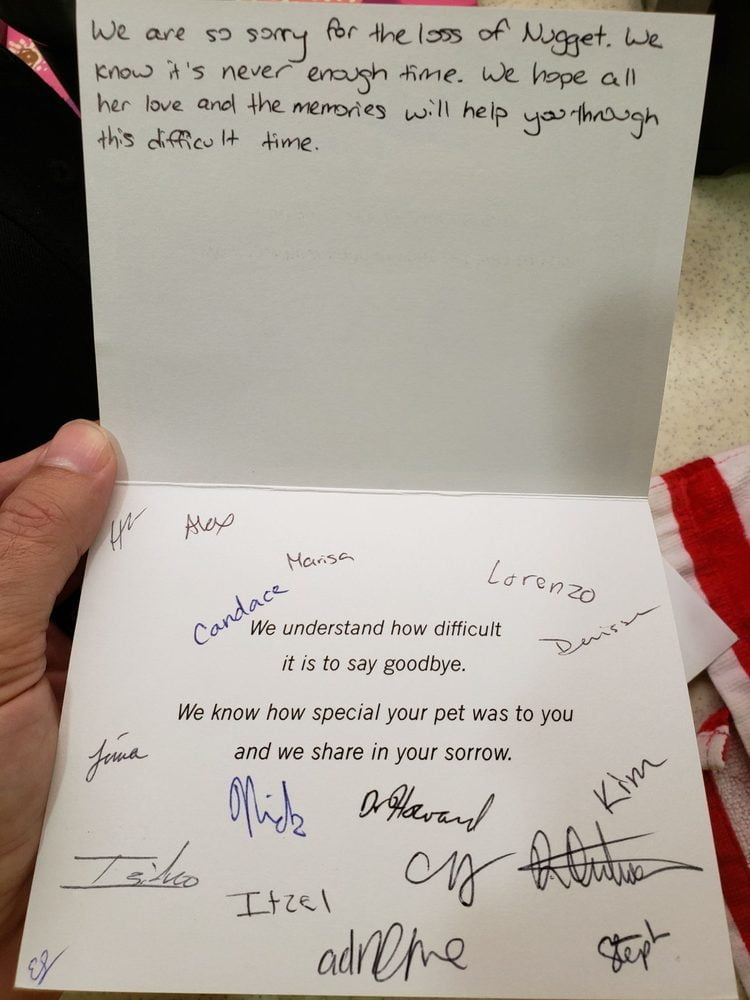 We are so sorry for the loss of Nugget. We
know it's never enough time. We hope all
her love and the memories will help you through
this difficult time.
Alex
Marisa
Lorenzo
Candace
We understand how difficult
it is to say goodbye.
We know how special your pet was to you
and we share in your sorrow.
Kim
Nick
Dr Howard
Itzel
Steph